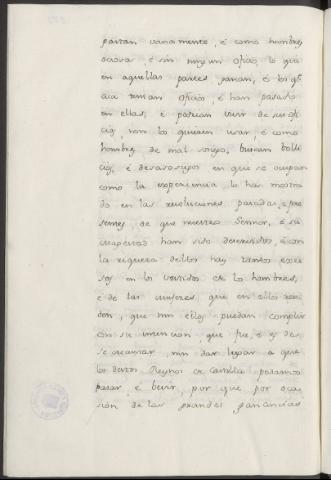 gastan vanamente, é como hombres
ociosos, é sin ningun oficio lo que
en aquellas partes ganan, é los qe.
aca tenian oficios, é han pasado
en ellas, é podrian vivir de su ofi
cio, non los quieren usar, é como
hombres de mal sosiego, buscan bolli
cios, é desasosiegos en que se ocupan
como la experiencia lo ha mostra
do en las revoluciones pasadas, é pre
sentes, de que nuestro Señor, é su
magestad han sido deservidos, é con
la riqueza dellos hay tantos exce
sos en los vestidos de los hombres,
é de las mugeres, que en ellos
que sin ellos puedan complir
con su intencion, que fue, é es de
se descansar, sin dar lugar a que
los destos Reynos de Castilla podamos
pasar, é bevir, por que por oca
sión de las grandes ganancias